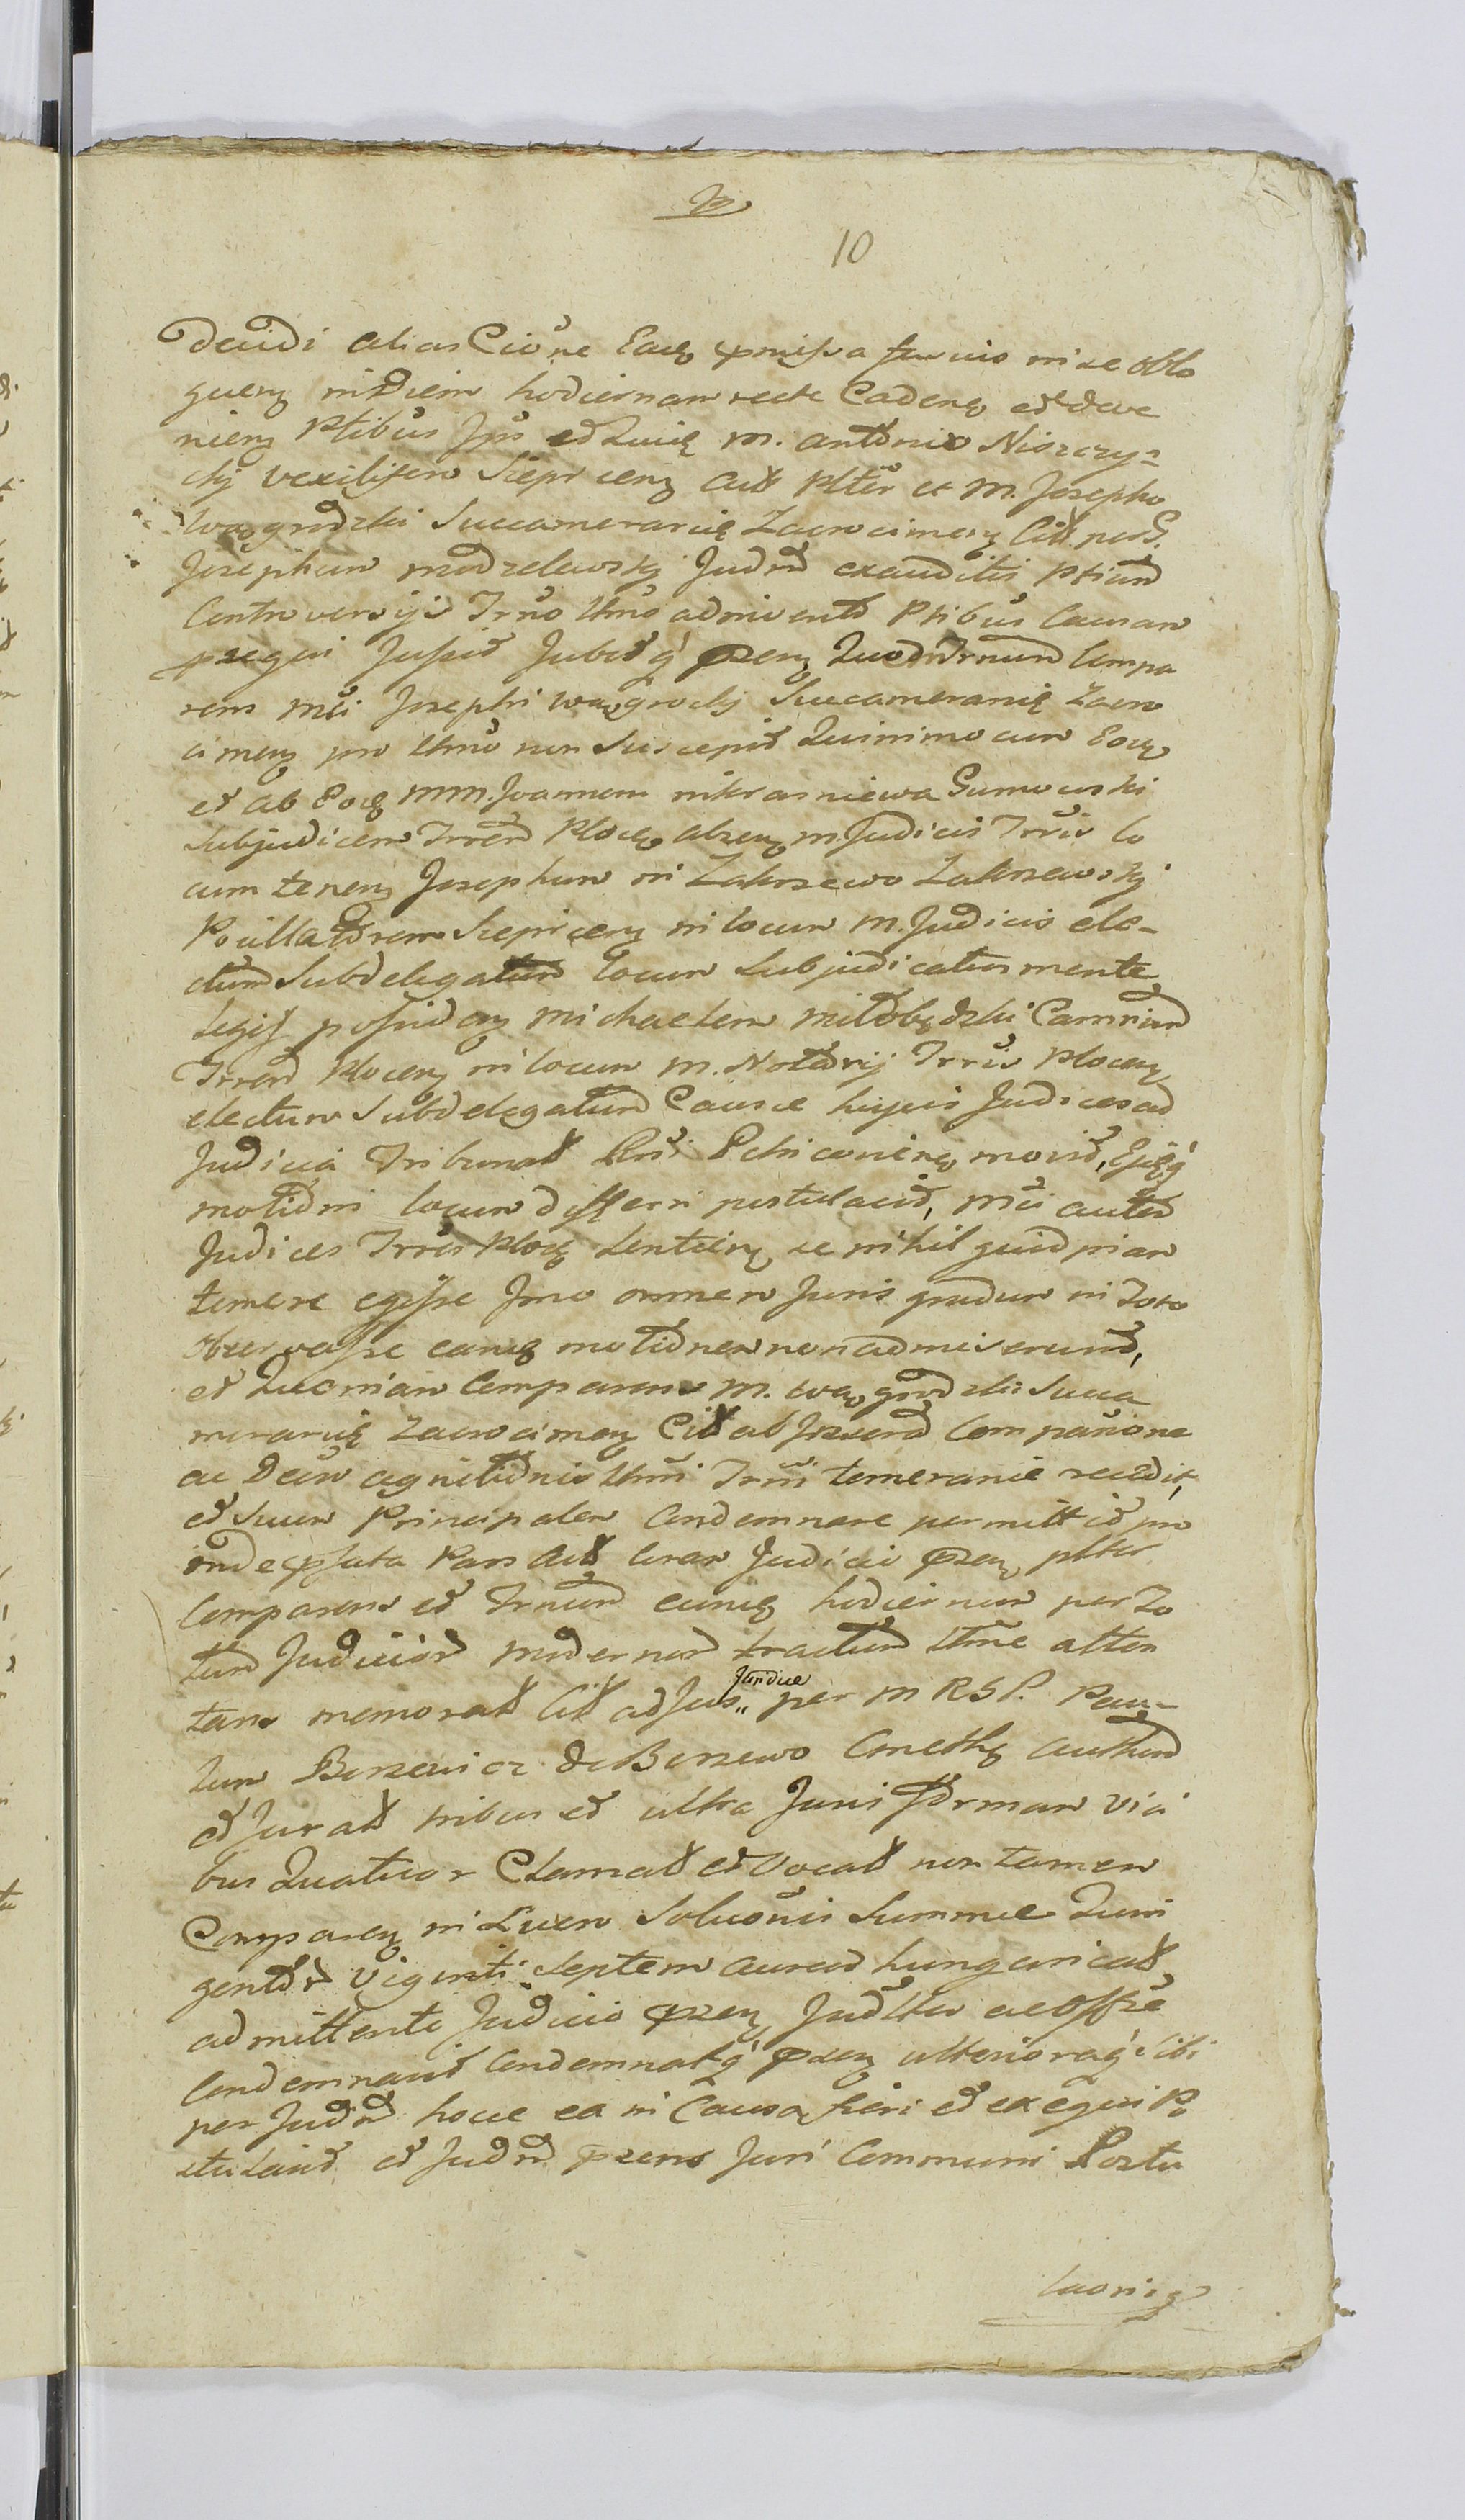 10
decidi alias Cione Eacq pmissa in se oblo
quenq in Diem hodiernam recte Cadenq et deve
nienq Ptibus Ipis et Quiq M. Antonio Niszczy=
cky Vexilifero Sieprcenq Act Plter et M. Josepho
Wągrodzki Succamerario Zacrocimenq Citt per G.
Josephum Modzelewsky Judm exauditis Ptium
Controversijs Trno Ultmo admivento Ptibus Causam
psequi Jussit Jubetq pzenq Quod Trnum Compa
rens Mci Josephi Wągrocky Succamerarij Zacro
cimenq pro Ultmo non Suscepit Quinimo cum Eoq
et ab Eoq MM. Joannem in Krasniewa Gumowski
Subjudicem Trrem Plocq absenq M. Judicis Trris lo
cum tenenq Josephum in Zakrzewo Zakrzewsky
Pocillatorem Sieprcenq in locum M. Judicis ele-
ctum Subdelegatum locum Subjudicatus mente
Legis possidenq Michaelem Miłobędzki Camrium
Trrem Plocenq in locum M. Notarij Trris Plocenq
electum Subdelegatum Causae hujus Judices ad
Judicia Tribunat Rni Petricovienq movit, Ejusq
motioni locum differri postulavit, Mci autem
Judices Trres Plocq Sentienq se nihil quidpiam
temere egisse Imo omnem Juris gradum in Toto
observasse eamq motionem non admiserunt,
et Quoniam Comparens M. Wągrodzki Succa
merarij Zacrocimenq Citt ab Jnserend Comparione
ac Decis agnitionis Ultmi Trni temerarie recedit,
et Suum Principalem Condemnare permittit pro
inde psata Pars Act Coram Judicio pzenq plter
Comparens et Trnum eumq hodiernum per To
tum Judiciorum modernor tractum Ultme atten
tans memorat Citt ad Jus" Jundice per M RSP. Pau-
lum Borzewicz de Borzewo Cmethq authum
et Jurat tribus et ultra Juris Formam vici
bus Quatuor Clamat et Vocat non tamen
Comparenq in Luen Solucionis Summae Quin
gentor Viginti Septem Aureor hungaricat
admittente Judicio pzenq Judlter ac Offse
Condemnavit Condemnatq pzenq ulterioraq Sibi
per Judm hocce ea in Causa fieri et exequi Po
stulavit et Judm pzens Juri Communi Postu
laoniq